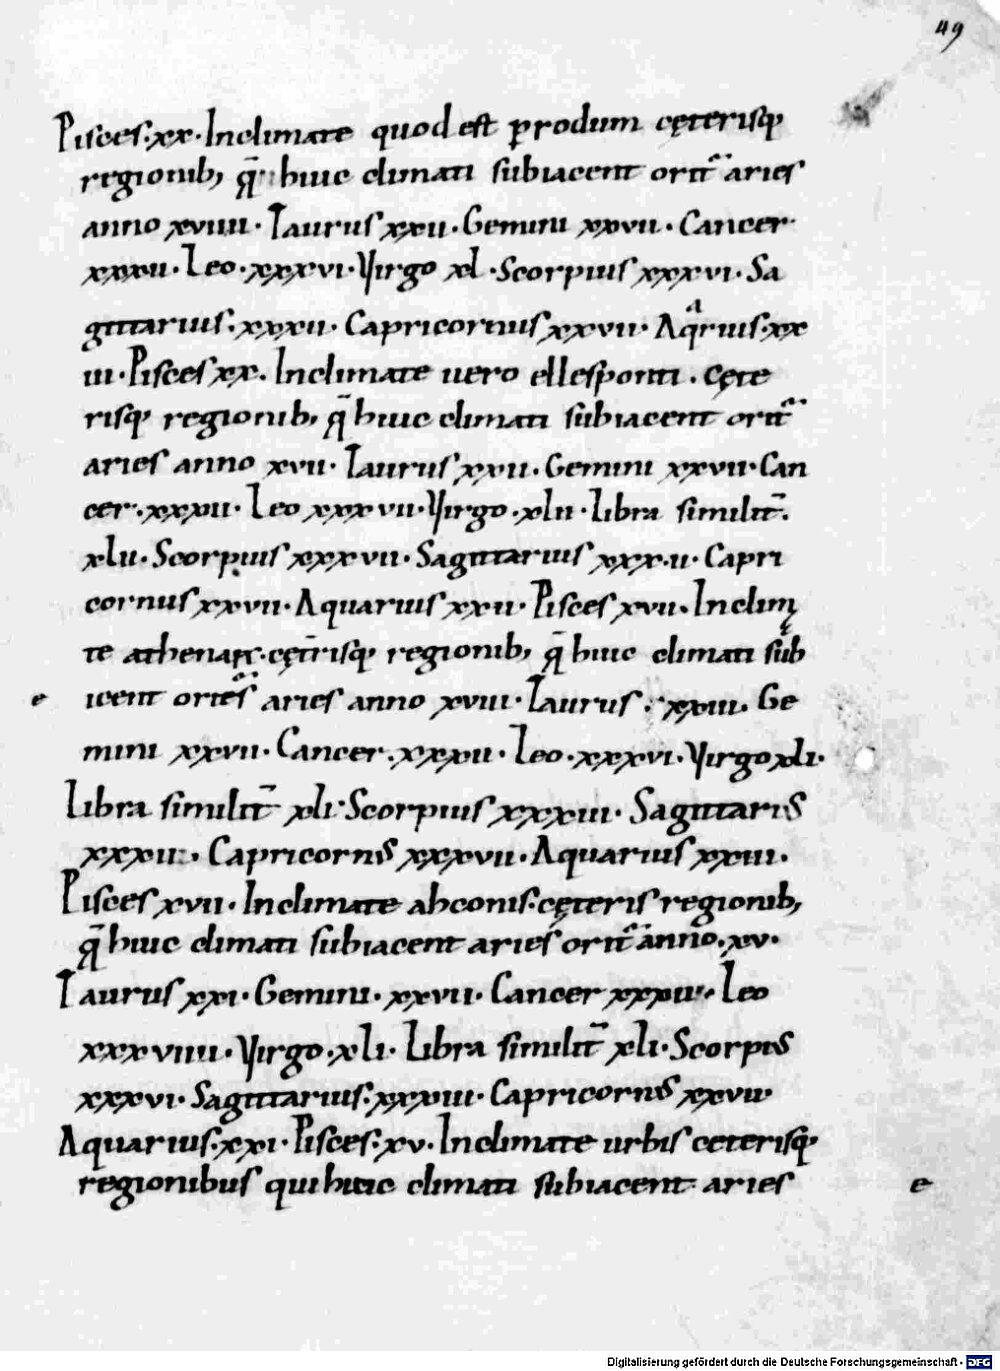 49
Pisces·xx· Inclimate quod est p̱rodum cęterisq;
regionib; q̄ huic climati subiacent orit̄ aries
anno xviiii· Taurus xxii· Gemini xxvii· Cancer
xxxii· Leo·xxxvi· Virgo xl·Scorpius xxxvi· Sa
gittarius·xxxii· Capricornius xxvii· Aqͣrius·xx
iii·Pisces xx· Inclimate uero ellesponti· cęte
risq; regionib; q̄ huic climati subiacent orit̄
aries anno xvii· Taurus xxii· Gemini xxvii· Can
cer·xxxii· Leo xxxvii· Virgo·xlii· Libra similit̄·
xlii· Scorpius xxxvii· Sagittarius xxx·ii· Capri
cornus xxvii· Aquarius xxii· Pisces xvii· Inclimę
te cęt̄risq; regionib; q̄ huic climati sub
icent aries anno xviii· Taurus·xxiii· Ge
e
mini xxvii· Cancer·xxxii· Leo·xxxvi· Virgo xli·
Libra similit̄ xli· Scorpius xxxiii· Sagittaris
xxxii· Capricornis xxxvii· Aquarius xxiii·
Pisces xvii· Inclimate abconis·cęteris regionib;
q̄ huic climati subiacent aries orit̄ anno·xv·
Taurus xxi· Gemini·xxvii· Cancer xxxii· Leo
xxxviiii· Virgo·xli· Libra similit̄ xli· Scorpis
xxxvi· Sagittarius·xxxiii· Capricornis xxvii
Aquarius·xxi· Pisces·xv· Inclimate urbis ceterisq;
regionibus qui huic climati subiacent aries
e
Digitalisierung gefördert durch die Deutsche Forschungsgemeinschaft - DFG